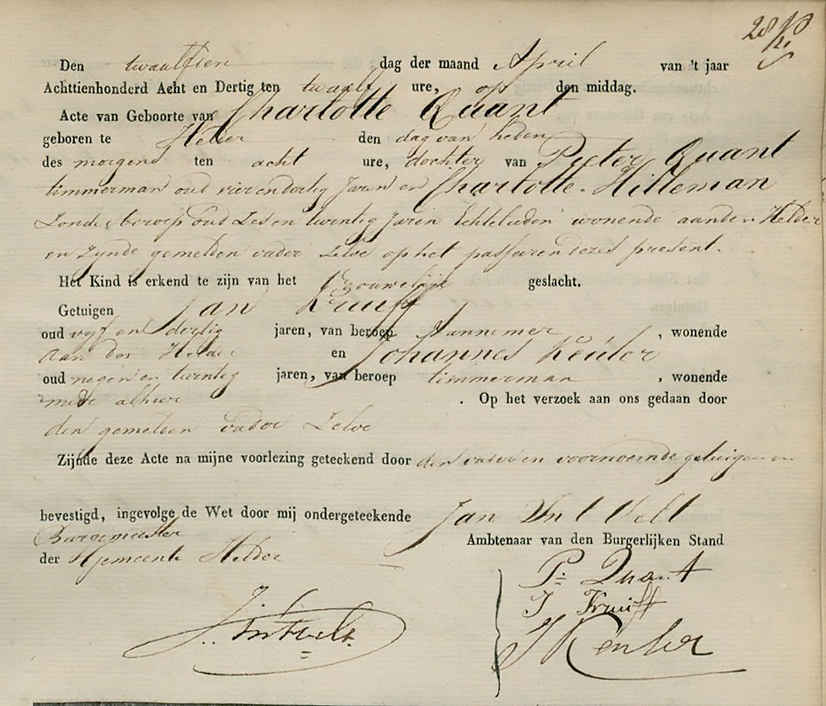 Den twaalfden dag der maand April van 't jaar
Achttienhonderd Acht en Dertig ten twaalf ure, op den middag.
Acte van Geboorte van Charlotte Quant
geboren te Helder den dag van heden
des morgens ten acht ure, dochter van Pieter Quant
timmerman oud vier en dertig Jaren en Charlotte Hilleman
Zonder beroep oud Zes en twintig Jaren Echtelieden wonende aan den Helder
en Zynde gemelden vader Zelve op het passeren dezes present.
Het Kind is erkend te zijn van het Vrouwelijk geslacht.
Getuigen Jan Kruijff
oud vyf en dertig jaren, van beroep aannemer, wonende
aan den Helder en Johannes Keuler
oud negen en twintig jaren, van beroep timmerman, wonende
mede alhier. Op het verzoek aan ons gedaan door
den gemelden vader Zelve
Zijnde deze Acte na mijne voorlezing geteekend door den vader en voornoemde getuigen en
bevestigd, ingevolge de Wet door mij ondergeteekende Jan In't Velt
Burgemeester Ambtenaar van den Burgerlijken Stand
der Gemeente Helder
P. Quant
J. In't Velt
J Kruijff
J Keuler